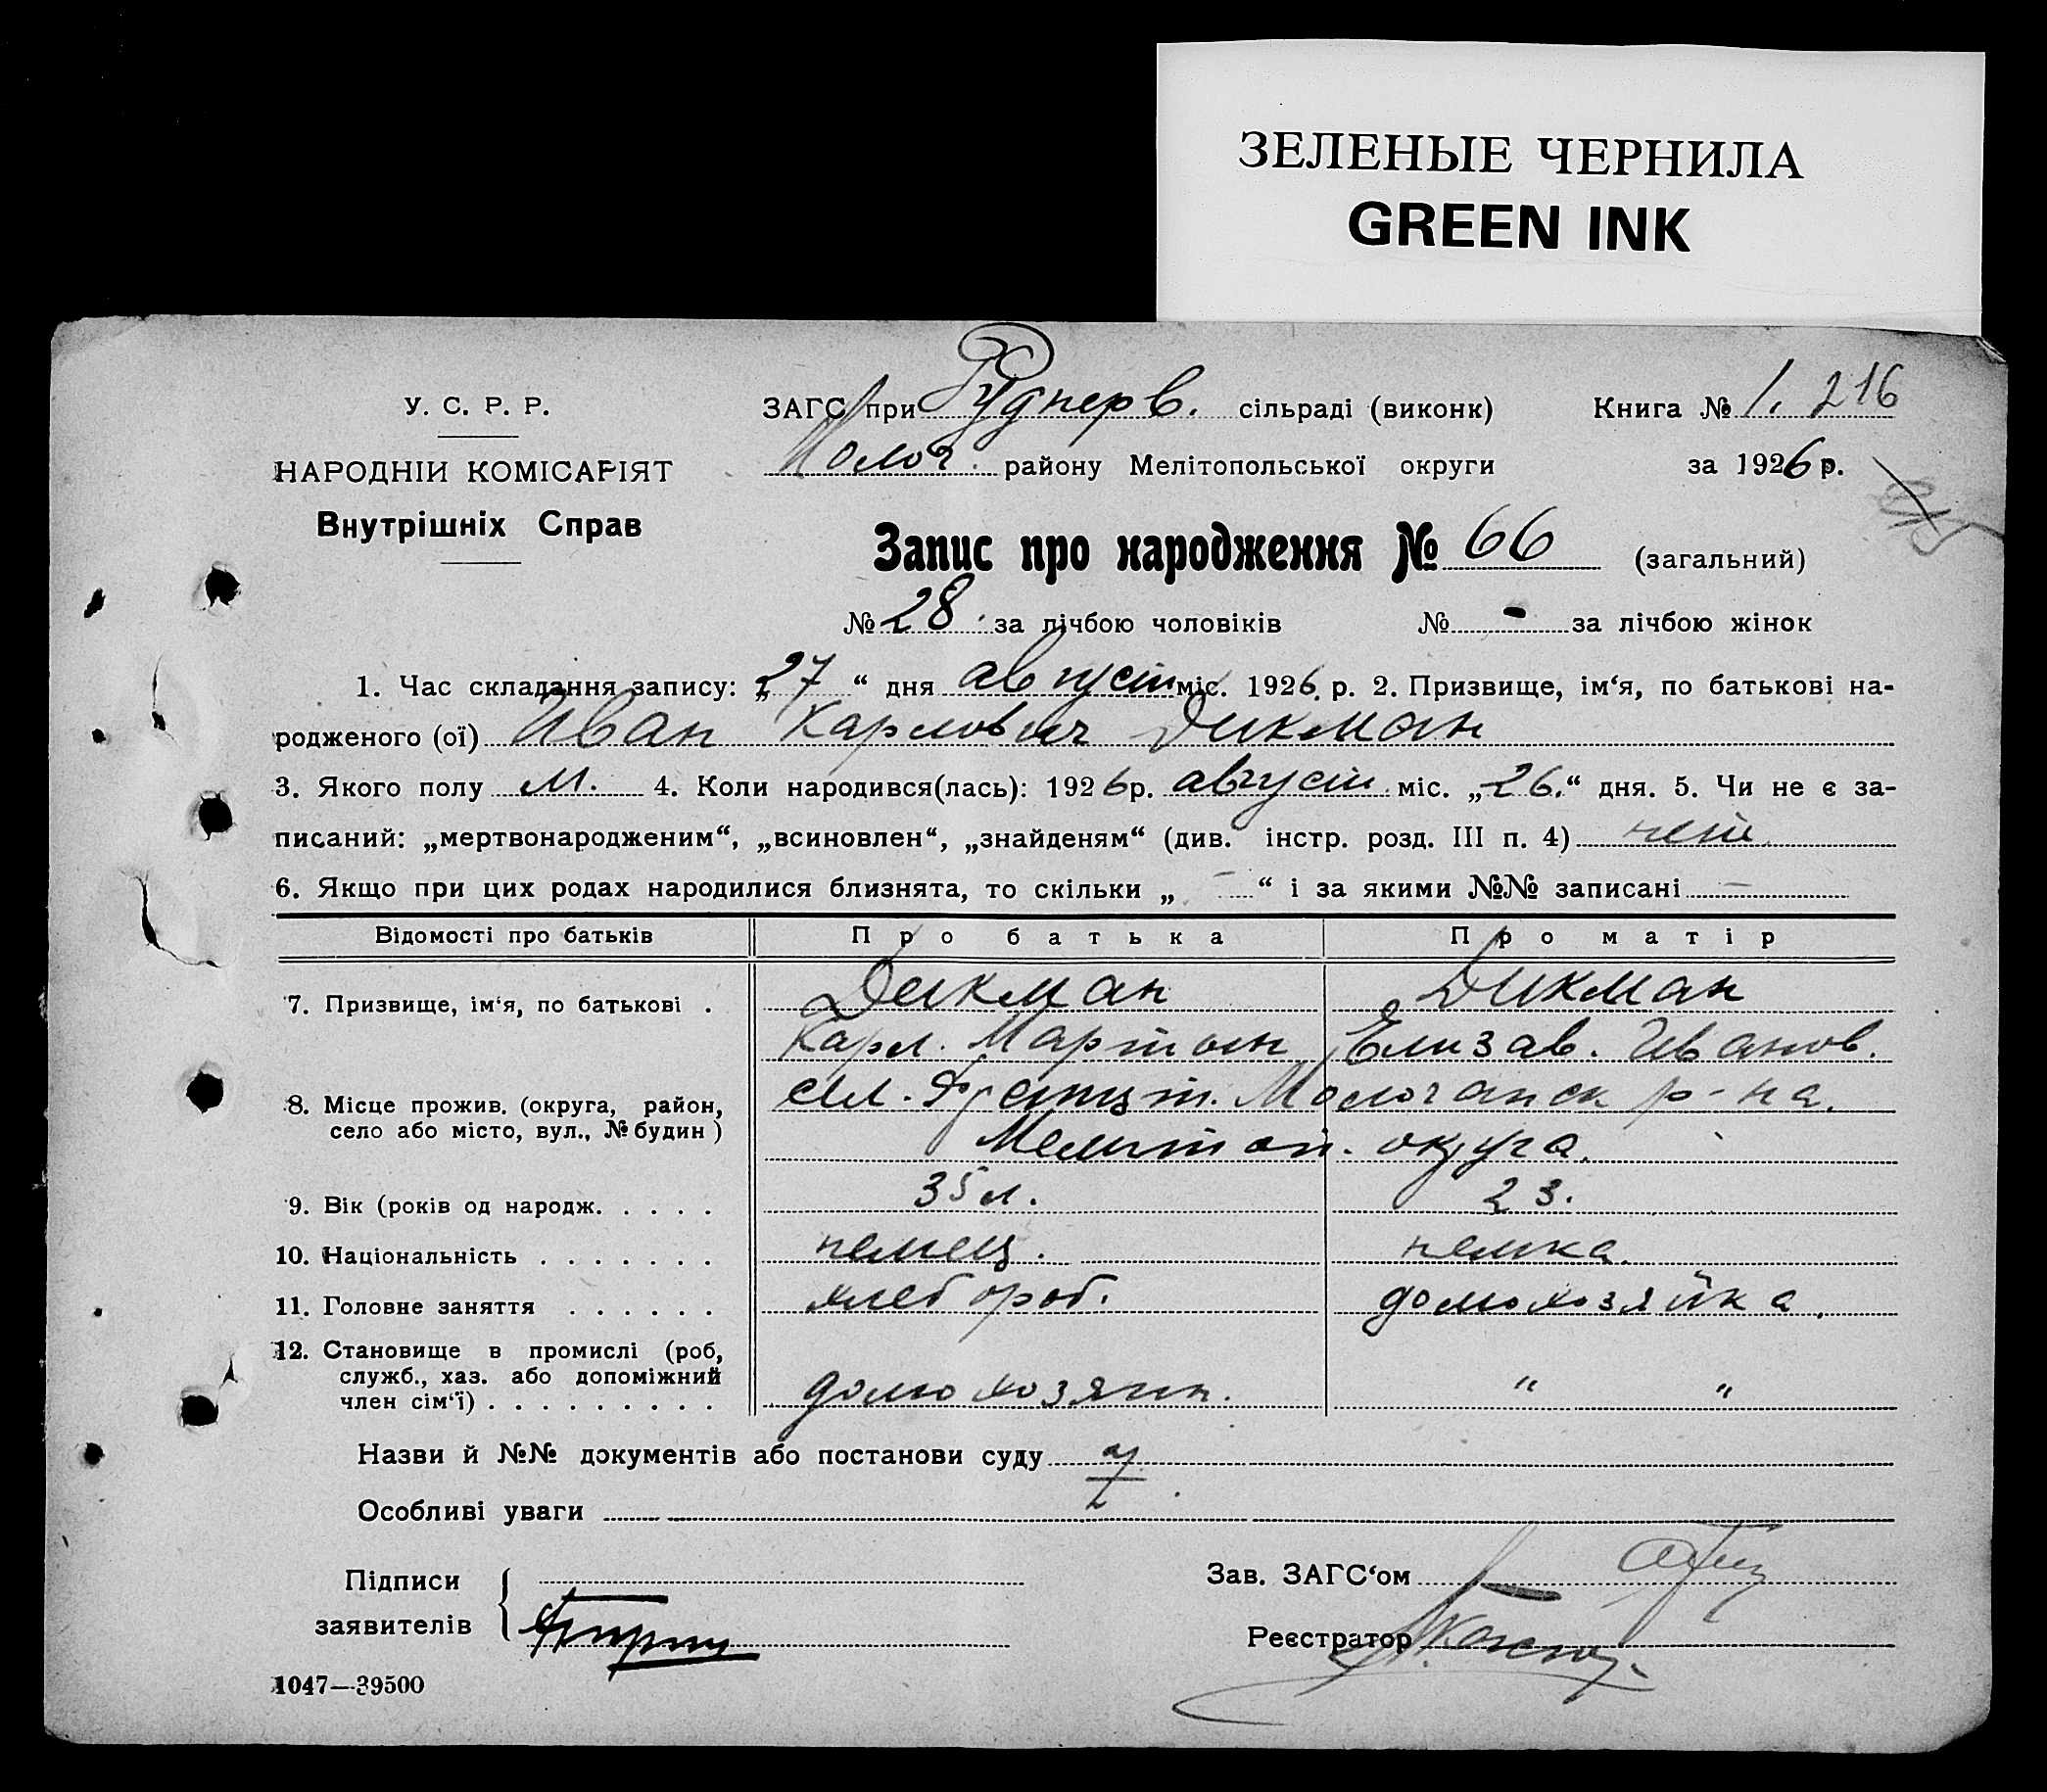 ЗЕЛЕНЫЕ ЧЕРНИЛА
GREEN INK
У. С. Р. Р.
НАРОДНІЙ КОМІСАРІЯТ
Внутрішніх Справ
ЗАГС при Руднерв. сільраді (виконк) Книга № 1. 216
Молоч. району Мелітопольської округи за 1926 р.
Запис про народження № 66 (загальний)
№ 28. за лічбою чоловіків № - за лічбою жінок
1. Час складання запису: „27“ дня август міс. 1926 р. 2. Призвище, ім‘я, по батькові на-
родженого (ої) Иван Карлович Дикман
3. Якого полу м. 4. Коли народився(лась): 1926 р. август міс. „26.“ дня. 5. Чи не є за-
писаний: „мертвонародженим“, „всиновлен“, „знайденям“ (див. інстр. розд. III п. 4) нет
6. Якщо при цих родах народилися близнята, то скільки „ - “ і за якими №№ записані -
Відомості про батьків Про батька Про матір
7. Призвище, ім‘я, по батькові . Дикман Дикман
Карл. Мартын Елизав. Иванов.
8. Місце прожив. (округа, район, Молочанск р-на.
село або місто, вул., № будин) Мелитоп. округа.
9. Вік (років од народж. . . . . 35 л. 23.
10. Національність . . . . . . . немец. немка.
11. Головне заняття . . . . . . хлебороб. домохозяйка.
12. Становище в промислі (роб,
служб., хаз. або допоміжний
член сім‘ї) . . . . . . . . . домохозяин. " "
Назви й №№ документів або постанови суду
Особливі уваги
Підписи Зав. ЗАГС‘ом
заявителів Реєстратор
1047—39500